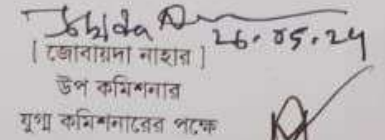 26.05.24
[ জোবায়দা নাহার ]
উপ কমিশনার
যুগ্ম কমিশনারের পক্ষে